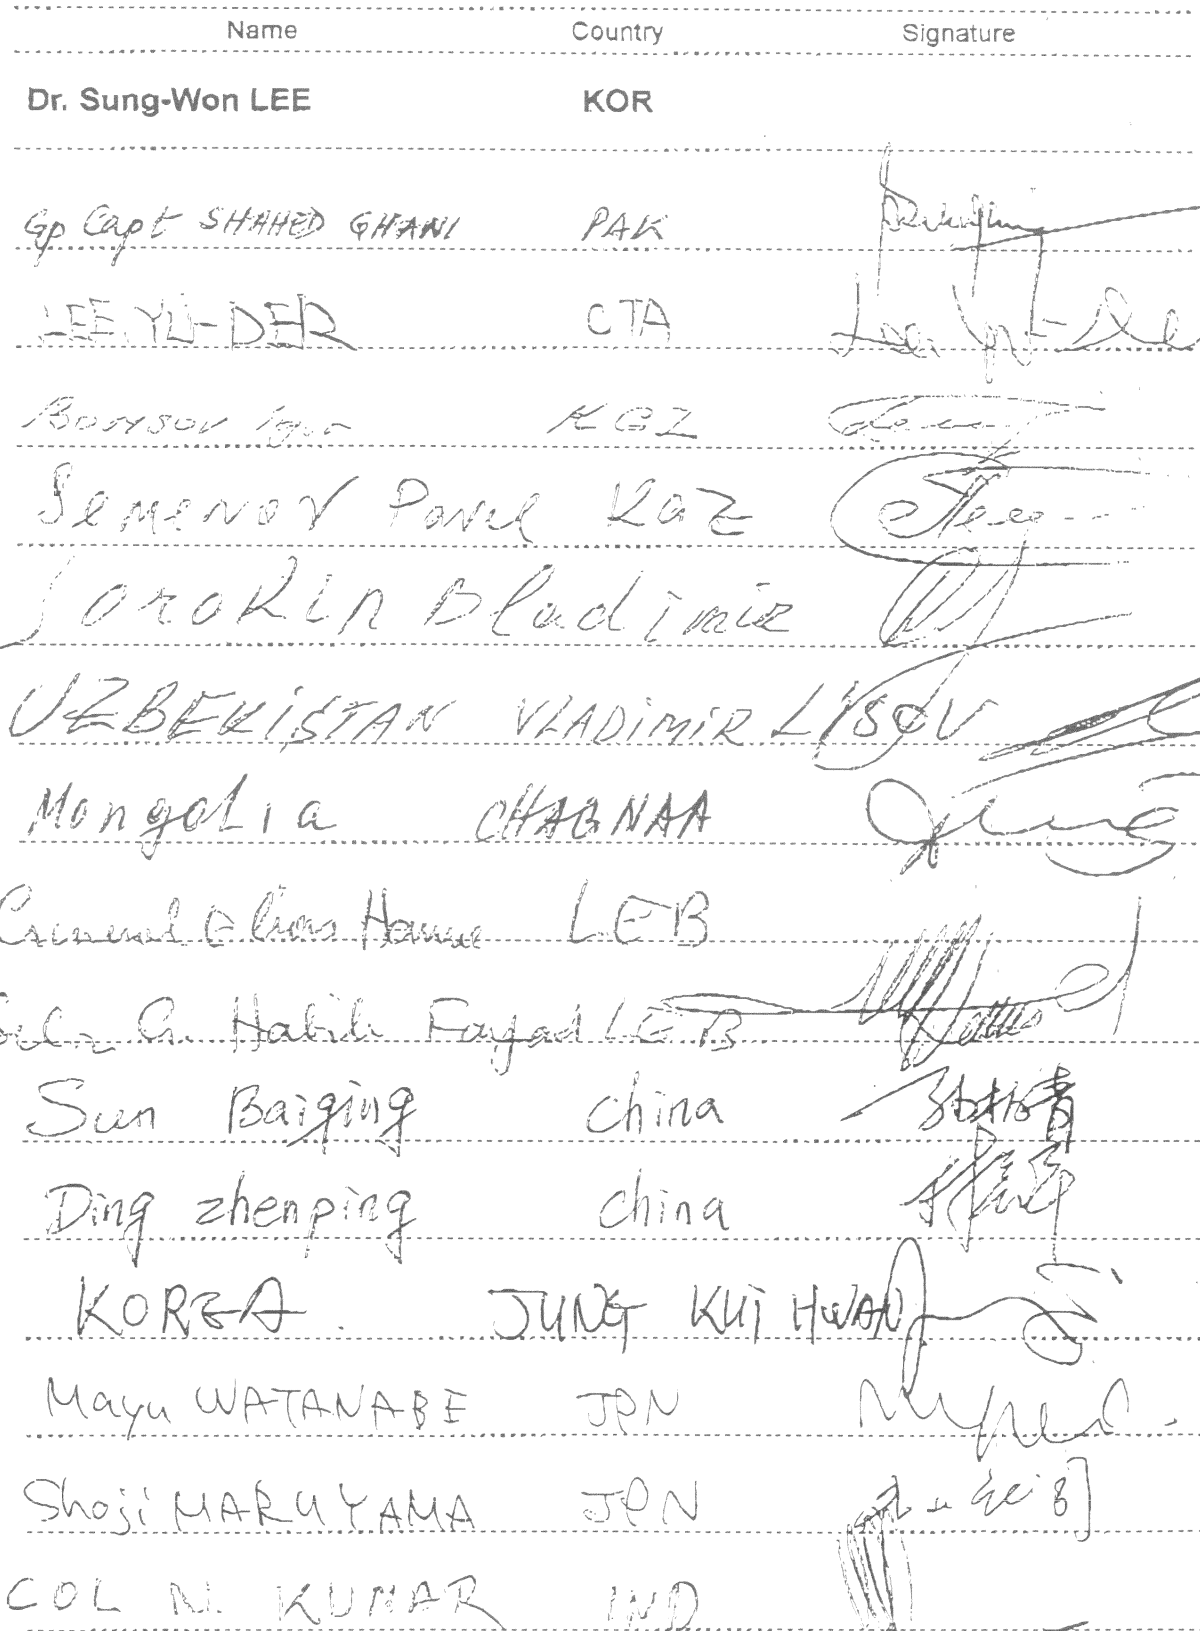 Name Country Signature
Dr. Sung-Won LEE KOR
Gp Capt SHAHED GHANI PAK
LEE, YU-DER CTA Lee Yu-De
Borysov Igor KGZ
Semenov Pavel KaZ
Sorokin Bladimir
UZBEKISTAN VLADIMIR LYSOV
MongoLia CHAGNAA
General Elias Hanne LEB
G. Habib Fayad LEB
Sun Baiqing China 孙柏青
Ding zhenping China
KOREA. JUNG KUI HWAN
Mayu WATANABE JPN
Shoji MARUYAMA JPN
COL N. KUMAR IND